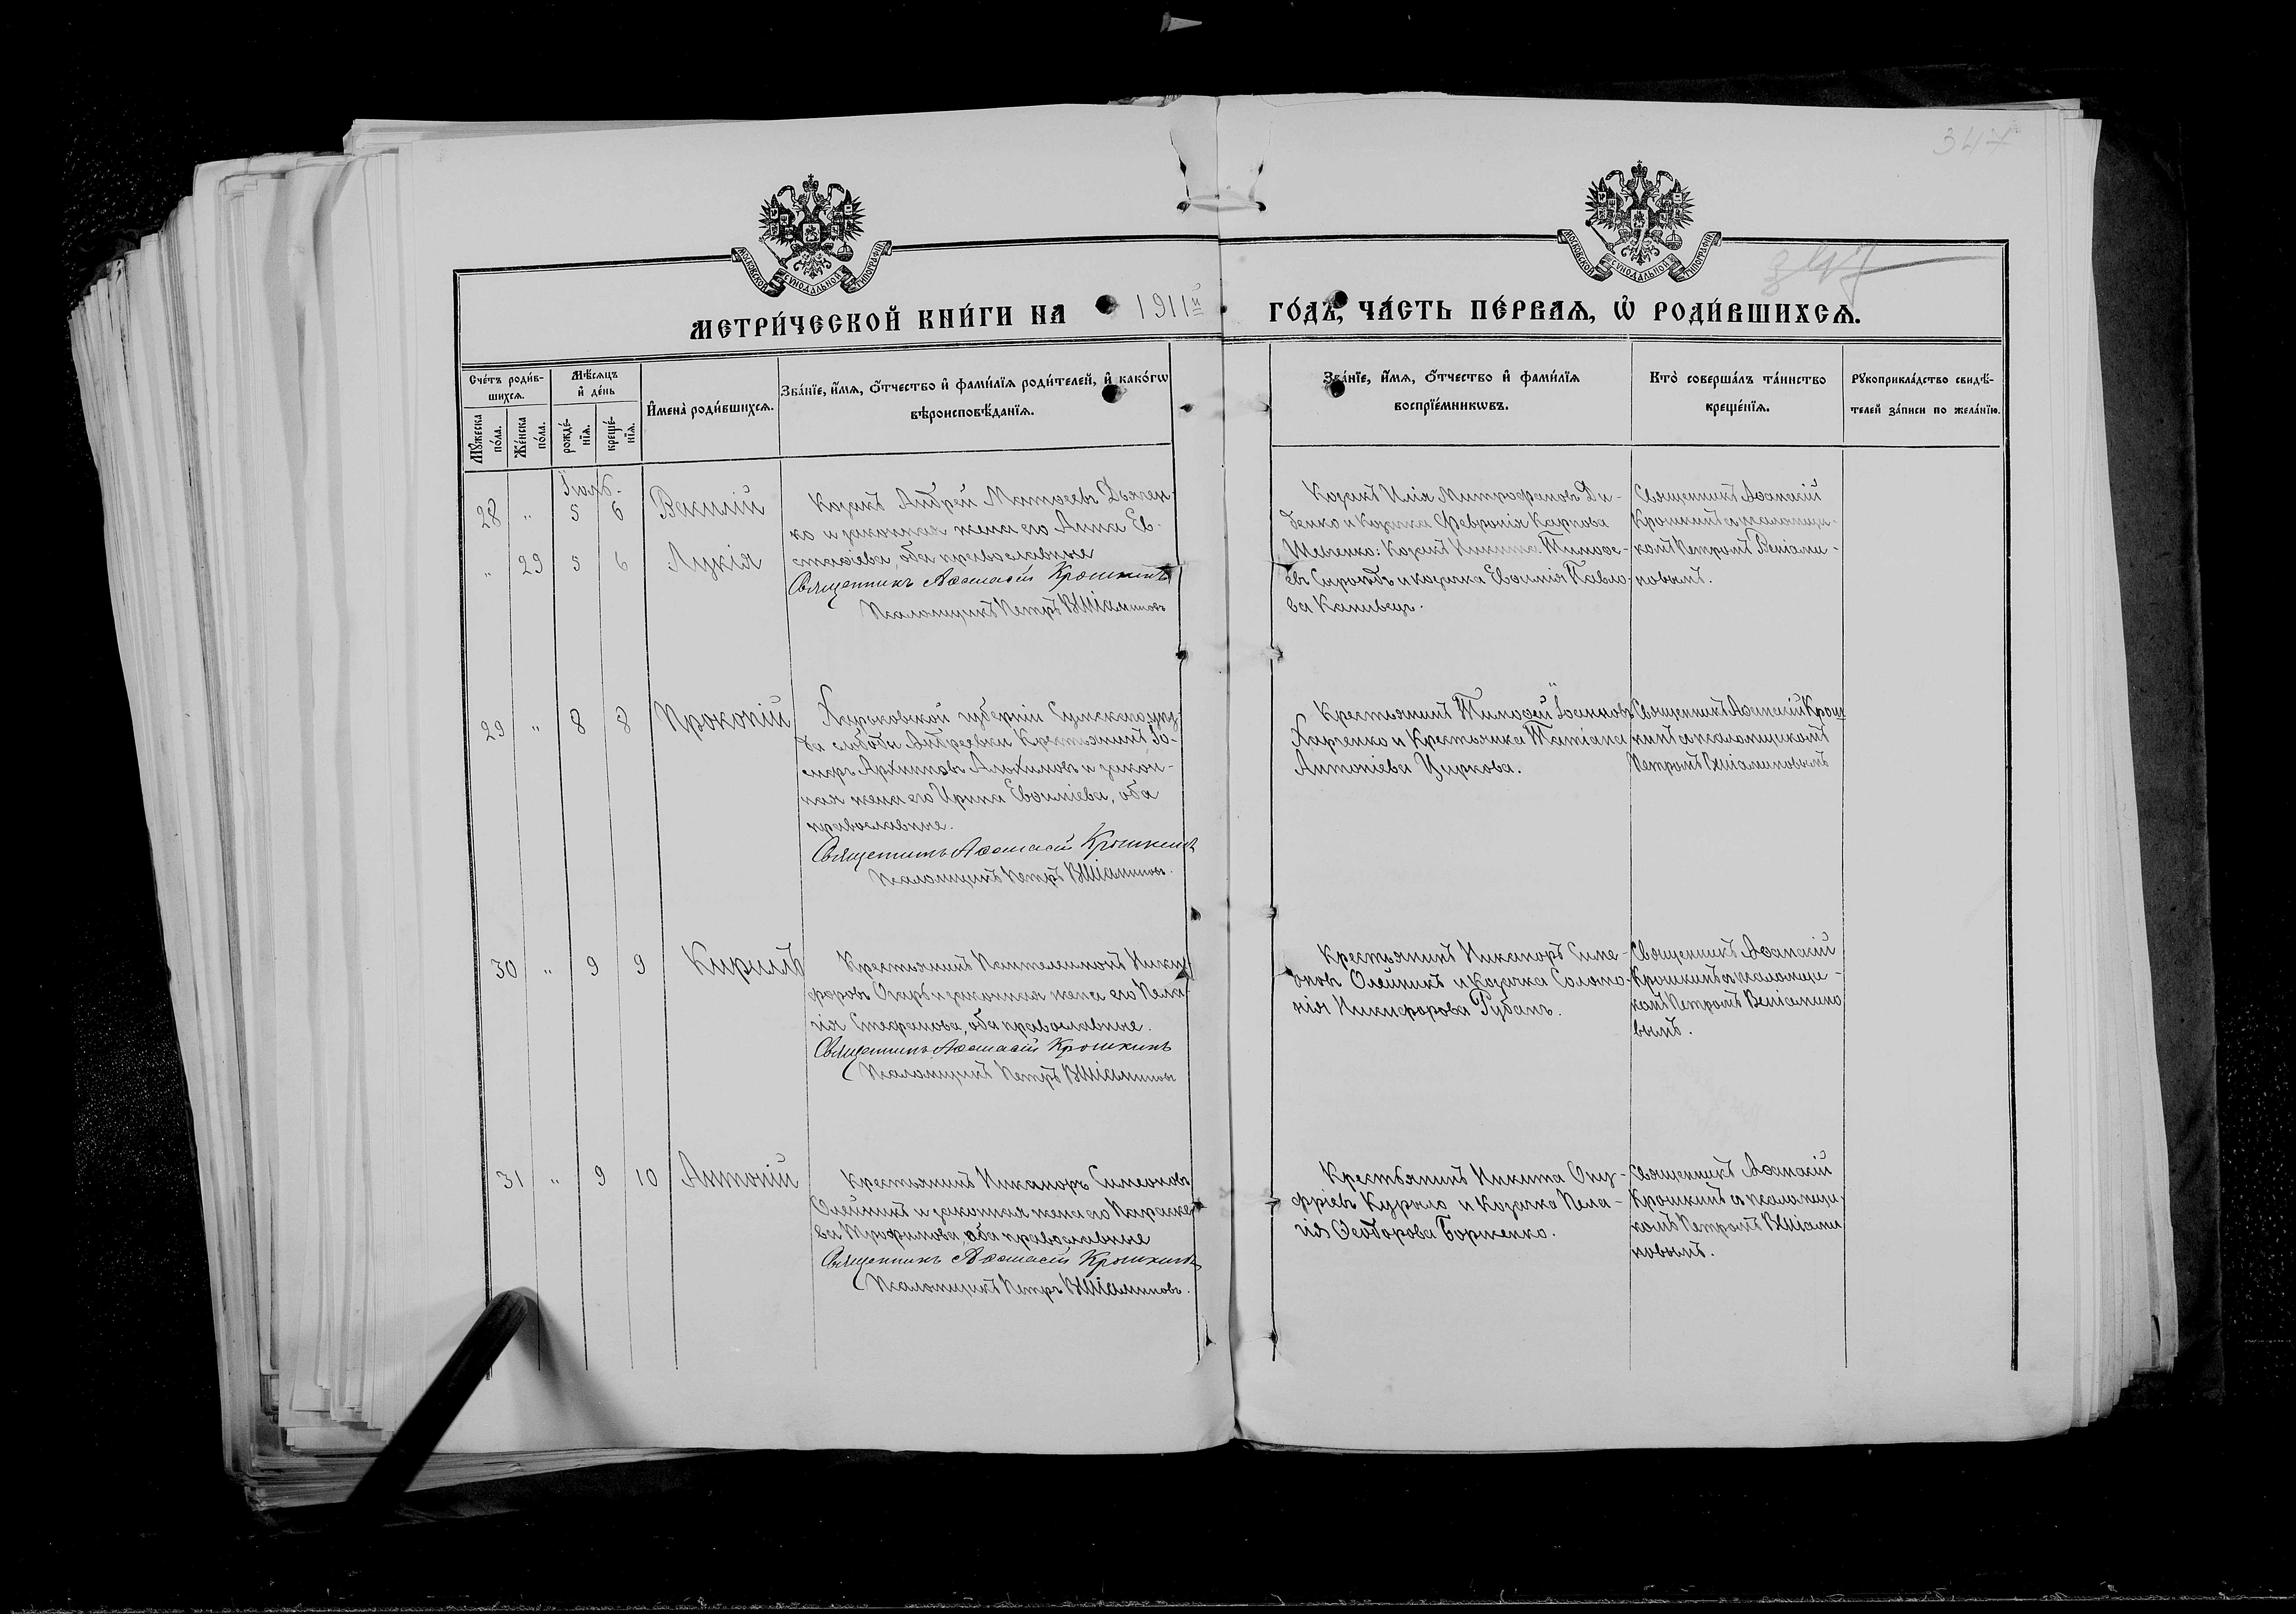 347
МОСКОВСКОЙ СУНОДАЛЬНОЙ ТИПОГРАФІИ
МОСКОВСКОЙ СУНОДАЛЬНОЙ ТИПОГРАФІИ
МЕТРИ́ЧЕСКОЙ КНИ́ГИ НА 1911й ГО́ДЪ, ЧА́СТЬ ПЕ́РВАѦ, Ѡ҆ РОДИ́ВШИХСѦ.
Сче́тъ роди́в-
шихсѧ.
Мꙋ́жеска по́ла.
Же́нска по́ла.
Мѣ́сѧцъ и҆ де́нь
рожде́-нїѧ.
креще́-нїѧ.
И҆мена̀ роди́вшихсѧ.
Зва́нїе, и҆́мѧ, ѻ҆́тчество и҆ фами́лїѧ роди́телей, и҆ како́гѡ
вѣроисповѣ́данїѧ.
Зва́нїе, и҆́мѧ, ѻ҆́тчество и҆ фами́лїѧ
воспрїе́мникѡвъ.
Кто̀ соверша́лъ та́инство
креще́нїѧ.
Рꙋкоприкла́дство свидѣ́-
телей за́писи по жела́нїю.
28 " 5 6 Василій
" 29 5 6 Лукія
Козакъ Андрей Матѳеевъ Дьячен-
ко и законная жена его Анна Ев-
стаѳіева, оба православные
Священникъ Аѳанасій Крошкинъ
Псаломщикъ Петръ Веніаминовъ
Козакъ Илія Митрофановъ Ди-
денко и козачка Февронія Карпова
Шевченко: Козакъ Никита Тимоѳе-
евъ и козачка Евѳимія Павло-
ва Канивецъ.
Священникъ Аѳанасій
Крошкинъ съ псаломщи-
комъ Петромъ Веніами-
новымъ.
29 " 8 8 Прокопій
Харьковской губерніи Сумскаго уѣз-
да слободы Андреевки Крестьянинъ Іо-
сифъ Архиповъ и закон-
ная жена его Ирина Евѳиміева, оба
православные.
Священникъ Аѳанасій Крошкинъ
Псаломщикъ Петръ Веніаминовъ.
Крестьянинъ Тимоѳей Іоанновъ
Харченко и Крестьянка Татіана
Антоніева Циркова.
Священникъ Аѳанасій Крош-
кинъ съ псаломщикомъ
Петромъ Веніаминовымъ
30 " 9 9 Кириллъ
Крестьянинъ Пантелеимонъ Ники-
форовъ и законная жена его Пела-
гія Стефанова, оба православные.
Священникъ Аѳанасій Крошкинъ
Псаломщикъ Петръ Веніаминовъ
Крестьянинъ Никаноръ Симе-
оновъ Олейникъ и Козачка Соломо-
нія Никифорова Рубанъ.
Священникъ Аѳанасій
Крошкинъ съ псаломщи-
комъ Петромъ Веніамино
вымъ.
31 " 9 10 Антоній
Крестьянинъ Никаноръ Симеоновъ
Олейникъ и законная жена его Параске-
ва Трофимова, оба православные
Священникъ Аѳанасій Крошкинъ
Псаломщикъ Петръ Веніаминовъ.
Крестьянинъ Никита Ону-
фріевъ Курыло и Козачка Пела-
гія Ѳеодорова Борженко.
Священникъ Аѳанасій
Крошкинъ съ псаломщи-
комъ Петромъ Веніами
новымъ.